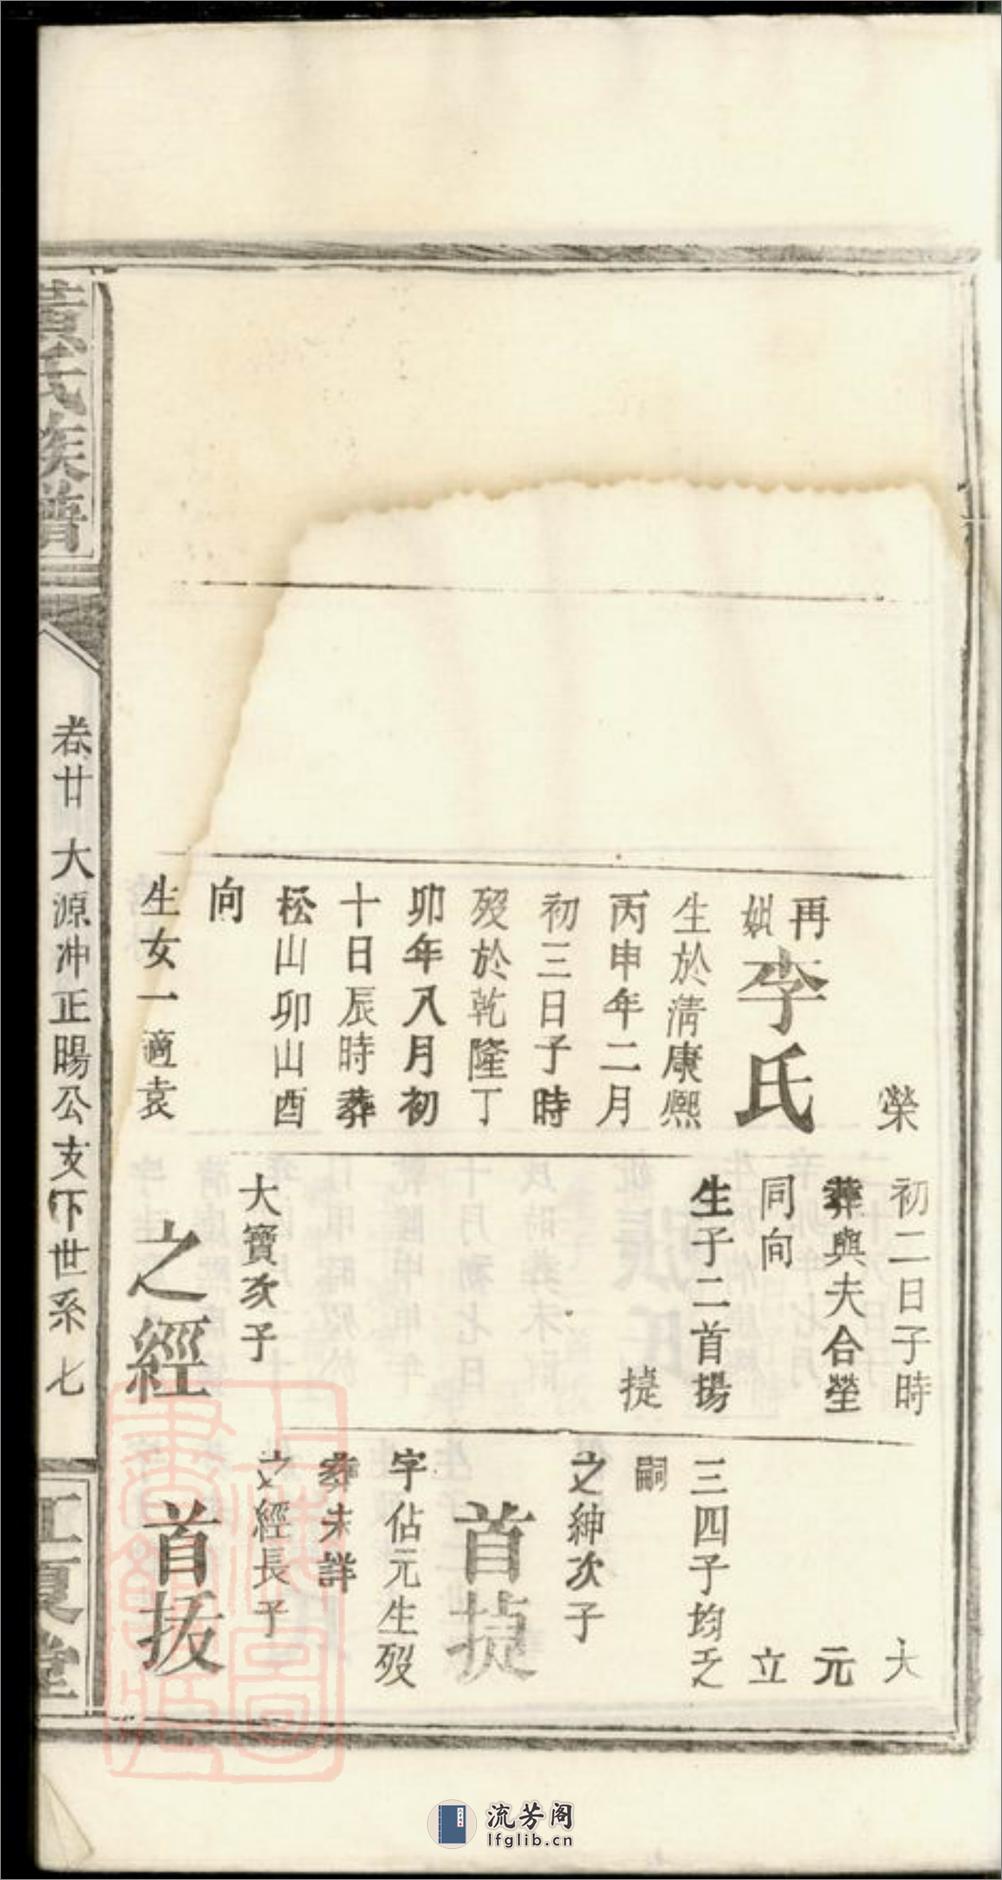 榮
再
娶
李氏
生於淸康熙
丙申年二月
初三日子時
歿於乾隆丁
卯年八月初
十日辰時葬
松山卯山酉
向
生女一適袁
初二日子時
葬與夫合塋
同向
生子二首揚
捷
大寶次子
之經
大
元
立
三四子均乏
嗣
之紳次子
首捷
字佔元生歿
葬未詳
之經長子
首拔
黃氏族譜
卷廿 大源冲正暘公支下世系 七
江夏堂
上海圖書館藏
流芳阁
lfglib.cn